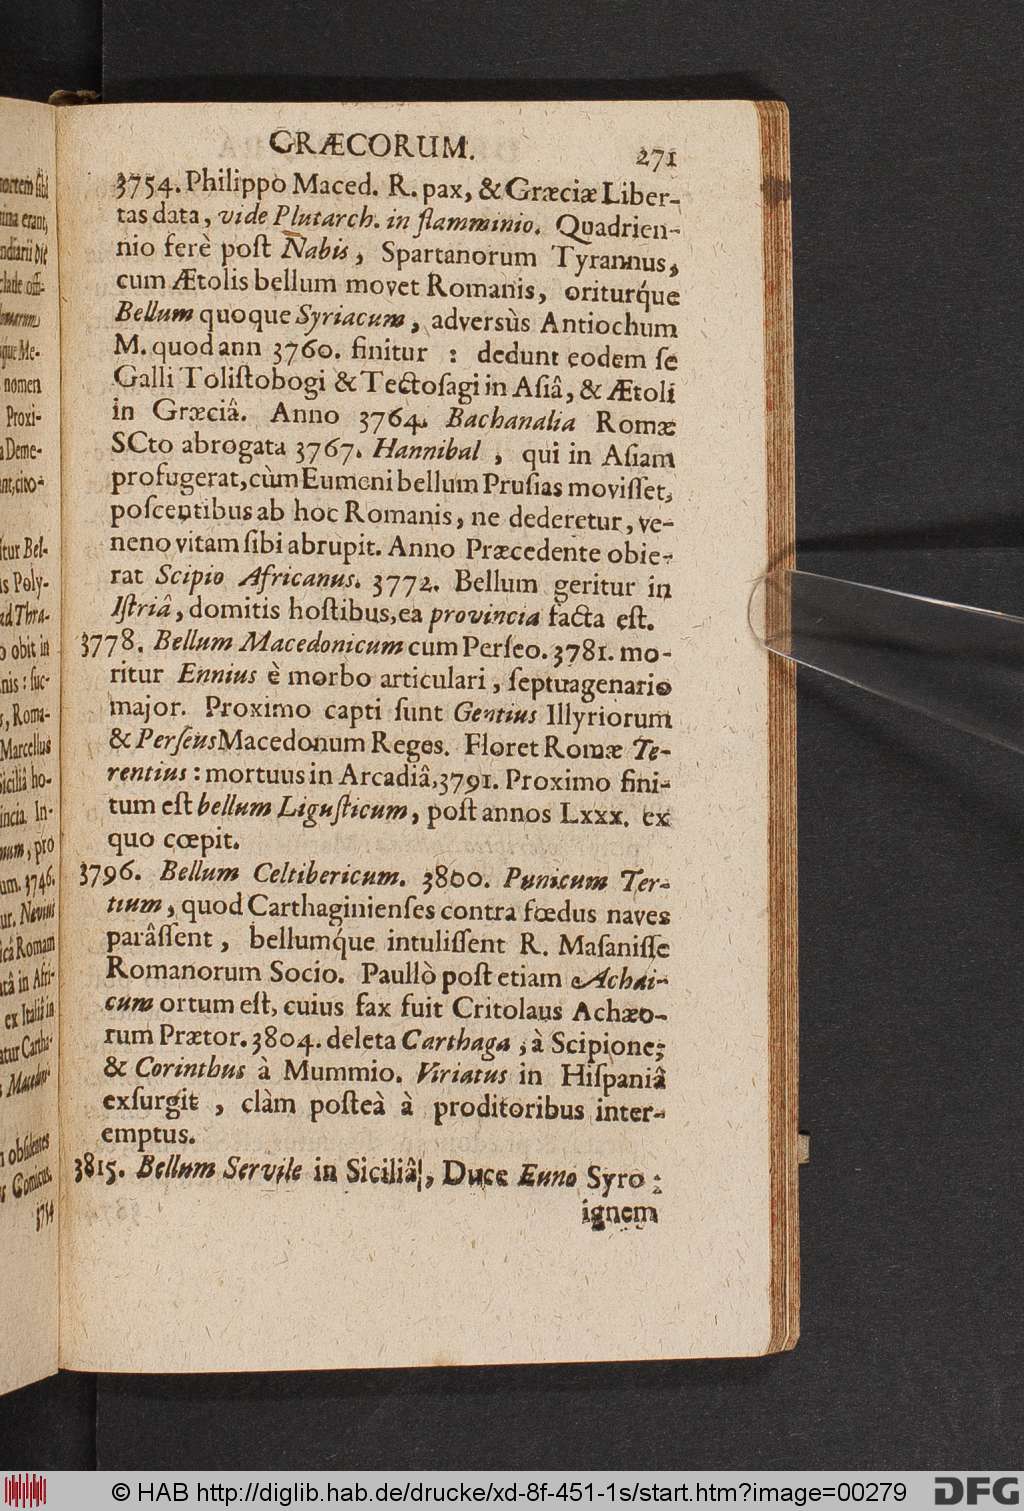 GRÆCORUM. 271
3754. Philippo Maced. R. pax, & Græciæ Liber-
tas data, vide Plutarch. in flamminio. Quadrien-
nio ferè poſt Nabis, Spartanorum Tyrannus,
cum Ætolis bellum movet Romanis, oriturq́ue
Bellum quoque Syriacum, adversùs Antiochum
M. quod ann 3760. finitur : dedunt eodem ſe
Galli Toliſtobogi & Tectoſagi in Aſiâ, & Ætoli
in Græciâ. Anno 3764. Bachanalia Romæ
SCto abrogata 3767. Hannibal , qui in Aſiam
profugerat, cùm Eumeni bellum Pruſias moviſſet,
poſcentibus ab hoc Romanis, ne dederetur, ve-
neno vitam ſibi abrupit. Anno Præcedente obie-
rat Scipio Africanus. 3772. Bellum geritur in
Iſtriâ, domitis hoſtibus, ea provincia facta eſt.
3778. Bellum Macedonicum cum Perſeo. 3781. mo-
ritur Ennius è morbo articulari, ſeptuagenario
major. Proximo capti ſunt Gentius Illyriorum
& Perſeus Macedonum Reges. Floret Romæ Te-
rentius : mortuus in Arcadiâ, 3791. Proximo fini-
tum eſt bellum Liguſticum, poſt annos Lxxx. ex
quo cœpit.
3796. Bellum Celtibericum. 3800. Punicum Ter-
tium, quod Carthaginienſes contra fœdus naves
parâſſent, bellumq́ue intuliſſent R. Maſaniſſe
Romanorum Socio. Paullò poſt etiam Achai-
cum ortum eſt, cuius fax fuit Critolaus Achæo-
rum Prætor. 3804. deleta Carthago, à Scipione;
& Corinthus à Mummio. Viriatus in Hiſpaniâ
exſurgit , clàm poſteà à proditoribus inter-
emptus.
3815. Bellum Servile in Siciliâ, Duce Euno Syro ;
ignem
© HAB http://diglib.hab.de/drucke/xd-8f-451-1s/start.htm?image=00279
DFG